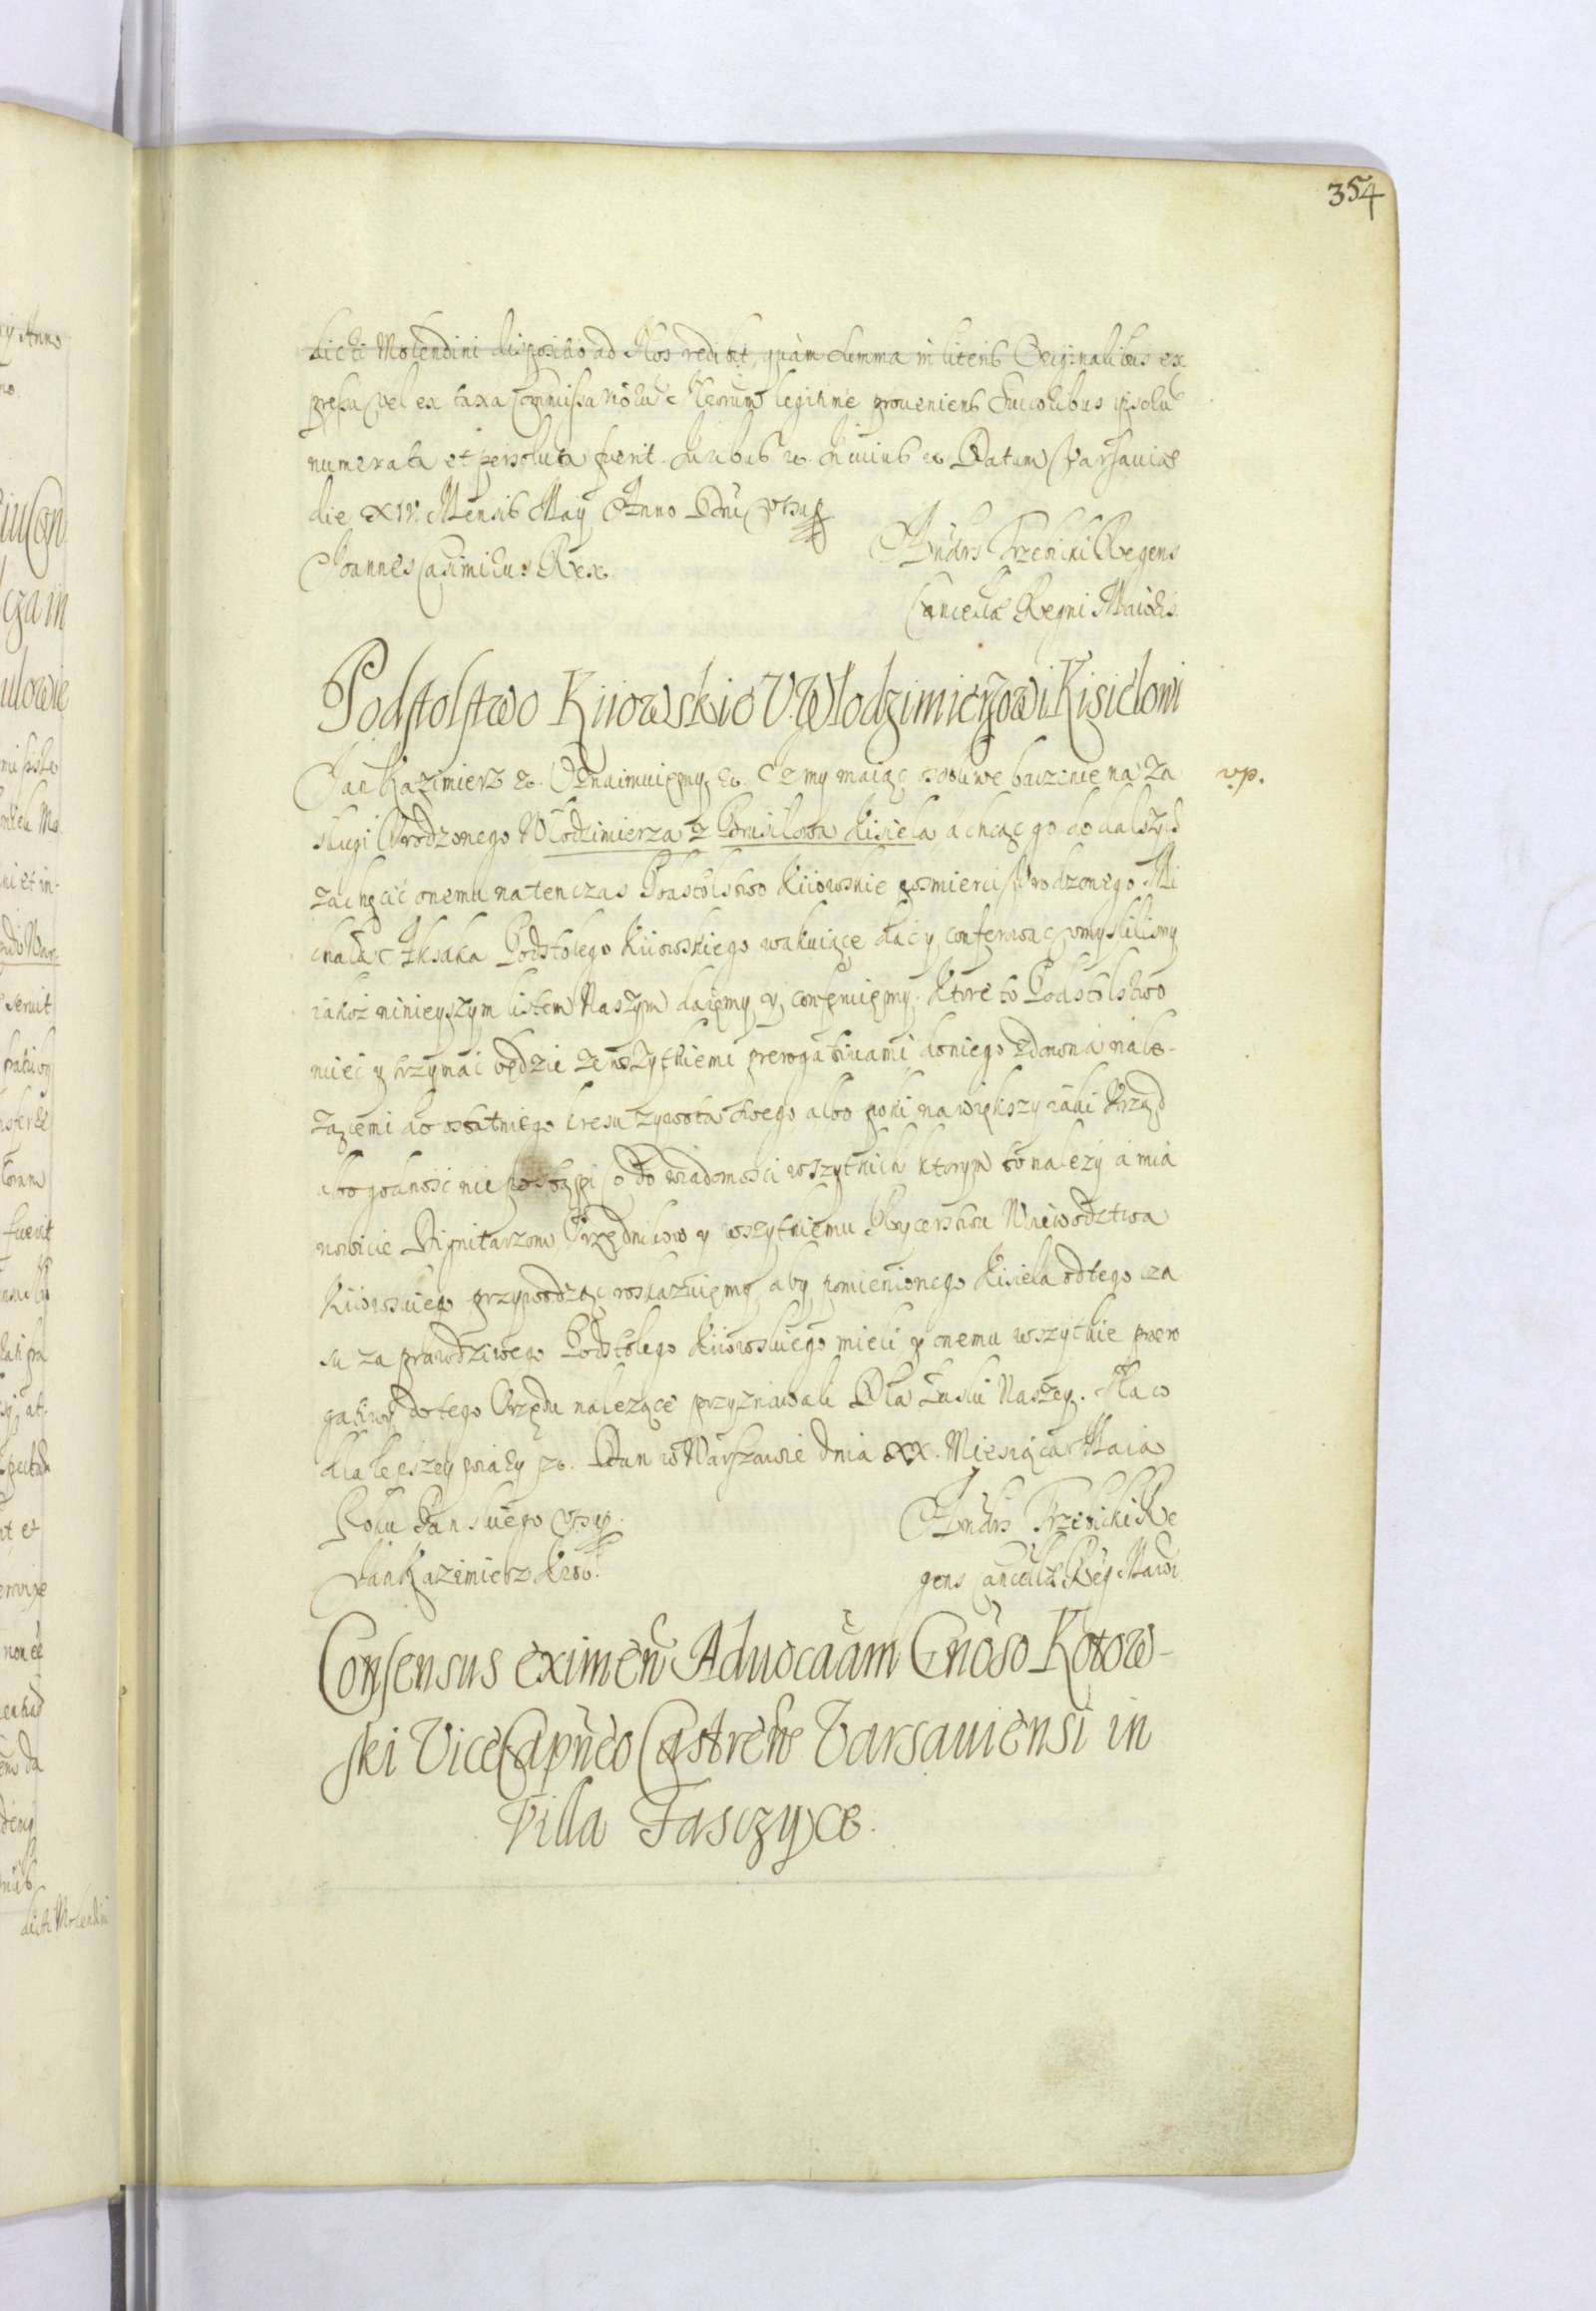 354
dicti Molendini dispositio ad Nos redibit, quàm summa in literis Originalibus ex
pressa vel ex taxa Commissa Nõru legitime proueniens Successoribus ipsoru
numerata et persoluta fuerit. Juribus &. In cuius & Datum Varsauiae
die XIV. Mensis Maij Anno Dni
Joannes Casimirus Rex.
Andrs Trzebicki Regens
Cancellã Regni Maioris.
Podstolstwo Kiiowskie V. Wlodzimierzowi Kisielowi
Jan Kazimierz &. Oznaimuiemy &. Iz my maiąc osobliwe baczenie na za
vp.
sługi Vrodzonego Włodzimierza z Brusiłowa Kisiela a chcąc go do dalszych
zachęcić onemu natenczas Podstolstwo Kiiowskie po smierci Vrodzonego Mi
chała Aksaka Podstolego Kiiowskiego wakuiące dać y conferować vmyslilismy
iakoż ninieyszym listem Naszym daiemy y conferuiemy. Ktore to Podstolstwo
mieć y trzymać będzie ze wszytkiemi prerogatiuami do niego zdawna nale-
żącemi do ostatniego kresu żywota swego albo poki na większy iaki Vrząd
albo godność nie postąpi Co do wiadomości wszytkich ktorym to należy a mia
nowicie Dignitarzom Vrzędnikow y wszytkiemu Rycerstwu Woiewodztwa
Kiiowskiego przywodząc roskazuiemy aby pomienionego Kisiela od tego cza
su za prawdziwego Podstolego Kiiowskiego mieli y onemu wszytkie prero
gatiwy do tego Vrzędu należące przyznawali Dla Łaski Naszey. Na co
dla lepszey wiary &. Dan w Warszawie dnia XX. Miesiąca Maia
Roku Panskiego
Jan Kazimierz Krol.
Andrs Trzebicki Re
gens Cancellã Reg Maior.
Consensus eximeñ Aduocaãm Gnõso Kotow-
ski ViceCapñeo Castreñ Varsauiensi in
Villa Jasczyce.
dicti Molendini